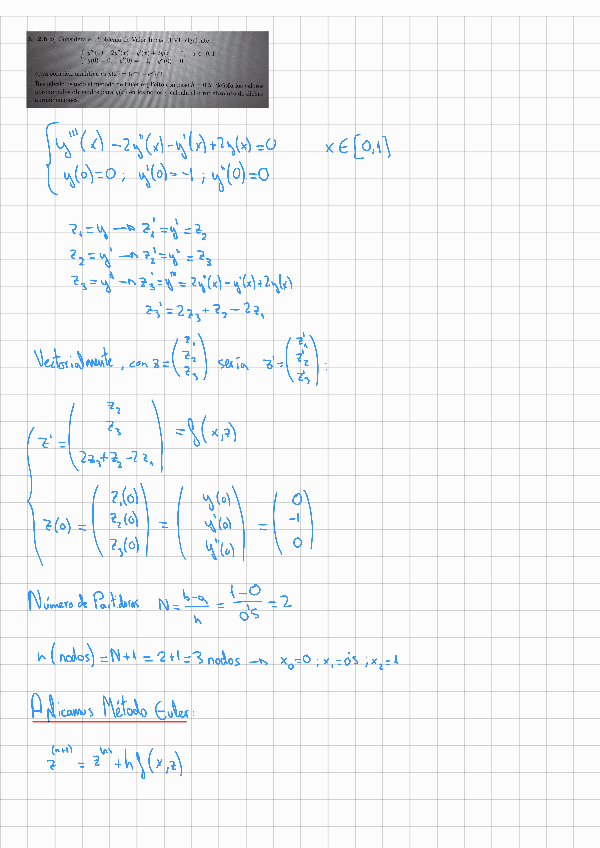 y'''(x) - 2y''(x) - y'(x) + 2y(x) = 0 x ∈ [0,1]
y(0) = 0 ; y'(0) = -1 ; y''(0) = 0
z₁ = y → z₁' = y' = z₂
z₂ = y' → z₂' = y'' = z₃
z₃ = y'' → z₃' = y''' = 2y''(x) - y'(x) + 2y(x)
z₃' = 2z₃ + z₂ - 2z₁
Vectorialmente, con z = (z₁ z₂ z₃) sería z' = (z₁' z₂' z₃') :
z' = (z₂ z₃ 2z₃ + z₂ - 2z₁) = f(x,z)
z(0) = (z₁(0) z₂(0) z₃(0)) = (y(0) y'(0) y''(0)) = (0 -1 0)
Número de Particiones N = b-a/h = 1-0/0'5 = 2
n (nodos) = N+1 = 2+1 = 3 nodos → x₀=0 ; x₁=0'5 ; x₂=1
Aplicamos Método Euler:
z⁽ⁿ⁺¹⁾ = z⁽ⁿ⁾ + h f(x,z)